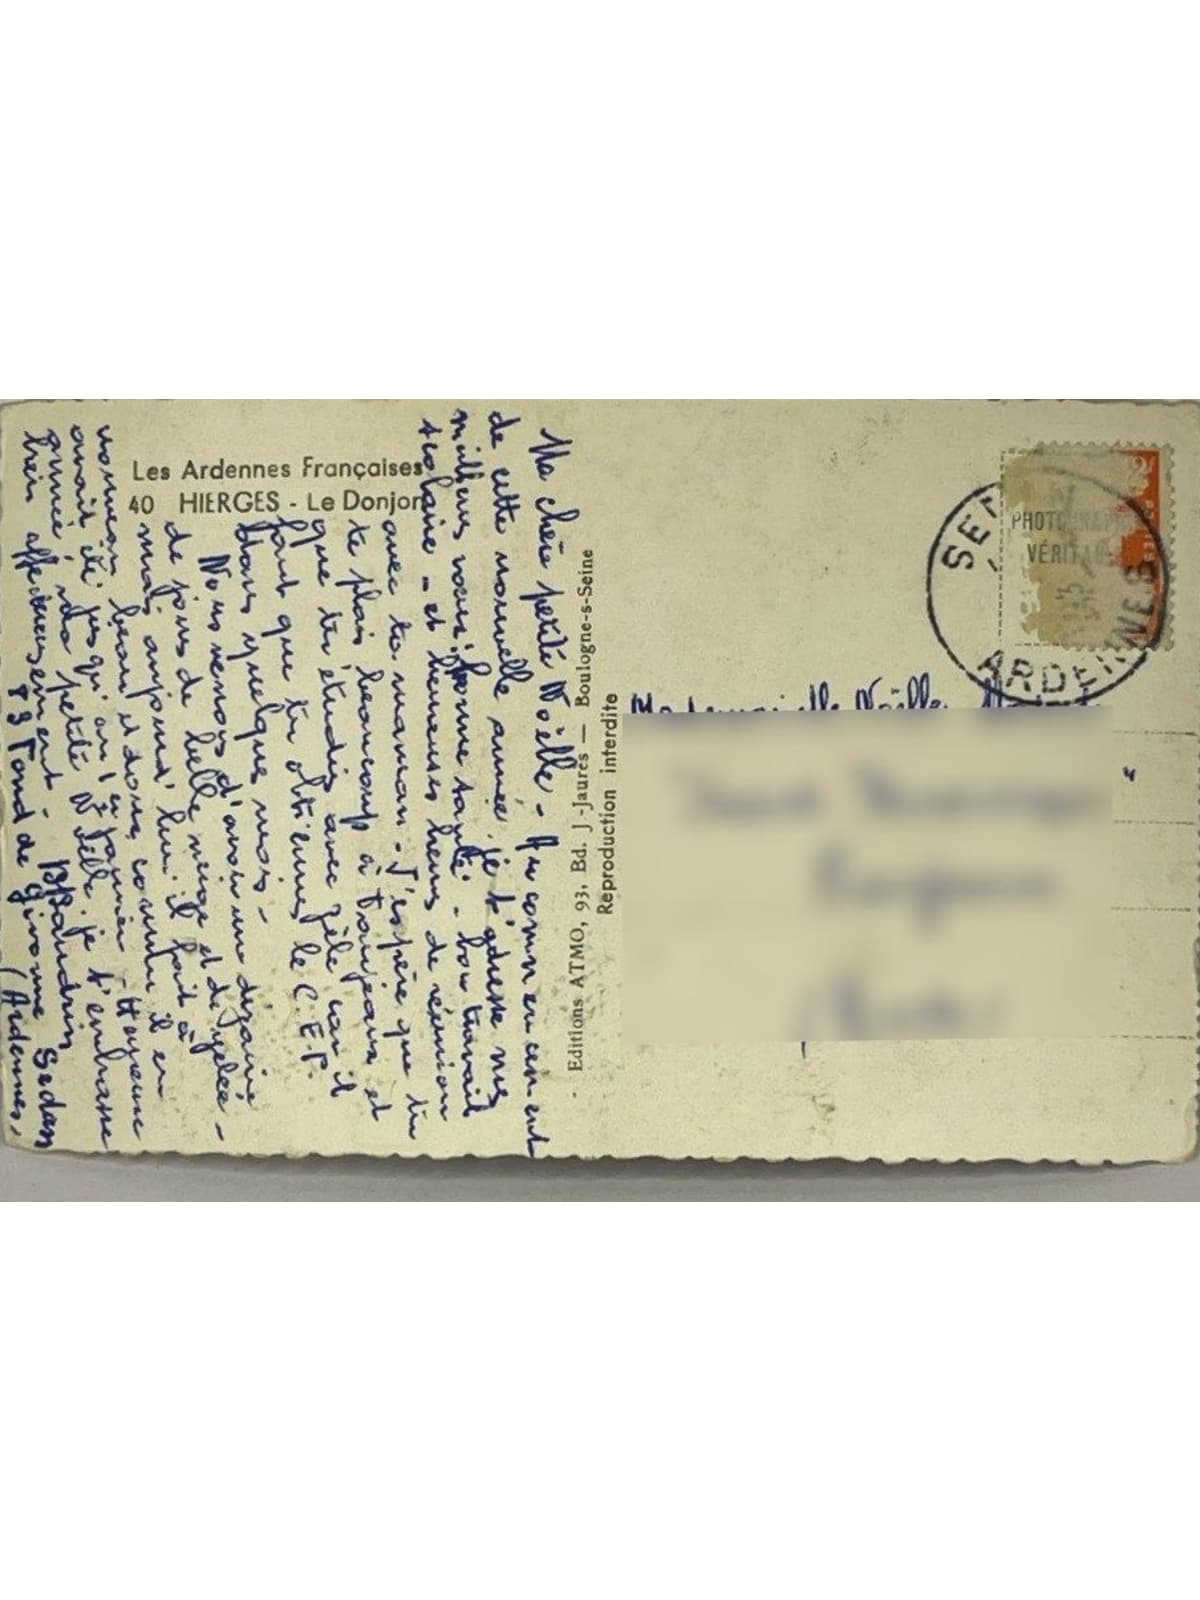 Les Ardennes Françaises
40 HIERGES - Le Donjon
Ma chère petite Noëlle - Au commencement
de cette nouvelle année je t'adresse mes
meilleurs vœux, bonne santé - bon travail
scolaire - et heureuses heures de réunion
avec ta maman. J'espère que tu
te plais beaucoup à et
que tu étudies avec zèle car il
faut que tu obtiennes le C.E.P.
dans quelques mois -
Nous venons d'avoir une dizaine
de jours de belle neige et de gelée -
mais aujourd'hui il fait à
nouveau beau et doux comme il en
avait été jusqu'au 1er janvier - Heureuse
année, ma petite Noëlle je t'embrasse
bien affectueusement -
Fond de Givonne Sedan
(Ardennes)
- Editions ATMO, 93, Bd. J.-Jaurès — Boulogne-s-Seine
Reproduction interdite
PHOTOGRAPHIE
VÉRITABLE
ARDENNES
Mademoiselle Noëlle